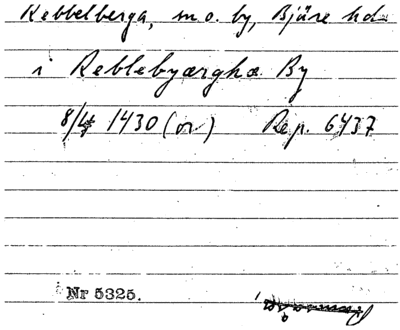 Rebbelberga, sn o. by, Bjäre hd
i Reblebyærghæ By
8/4 1430 (or) Rep. 6437
Nr 5325.